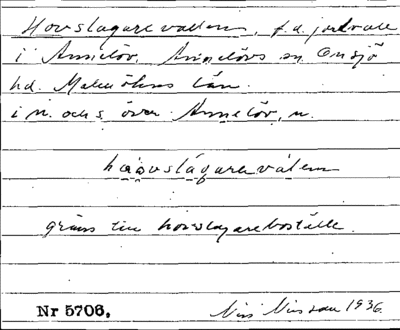 Hovslagarevallen, f.d. jordvall
i Annelöv, Annelövs sn Onsjö
hd. Malmöhus län.
i n. och s. över Annelöv, n.
håovslágarevàlem
gräns till hovslagarebostället.
Nr 5706. Nils Nilsson 1936.